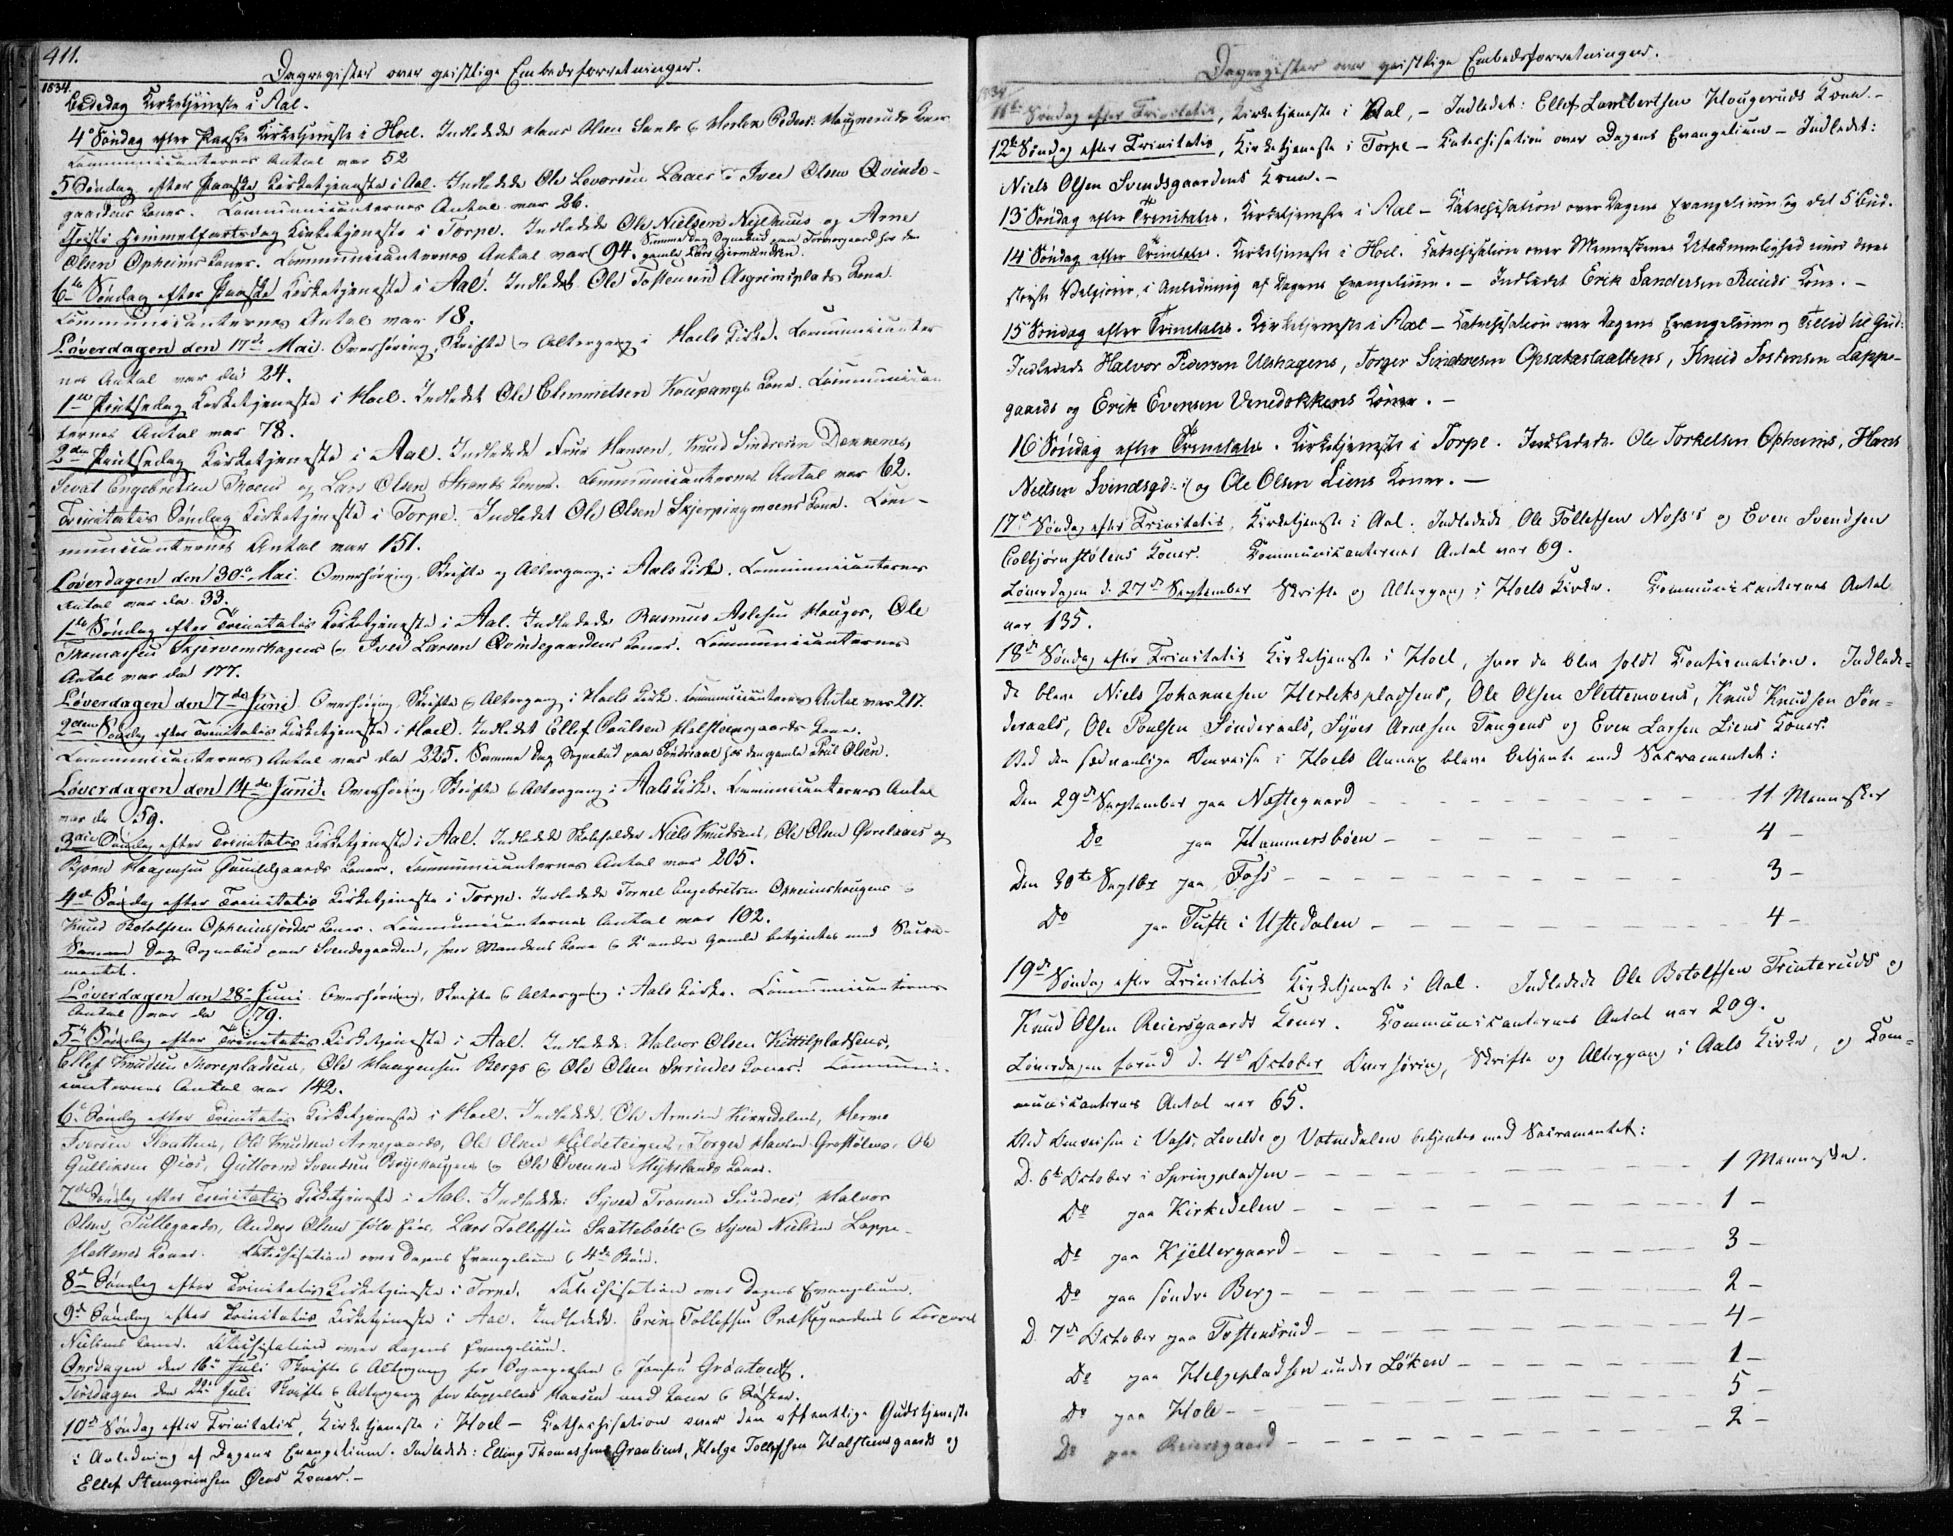 411.
Dagregister over geistlige Embedsforretninger.
1834.
Bededag Kirketjeneste i Aal.
4de Søndag efter Paaske Kirketjeneste i Hoel. Indledede Hans Olsen Sands & Herlek Peders: Haugneruds Koner
Communicanternes Antal var 52
5 Søndag efter Paaske Kirketjeneste i Aal. Indledede Ole Levorsen Laaes & Iver Olsen Qvinde-
gaardens Koner. Communicanternes Antal var 26.
Christi Himmelfartsdag Kirketjeneste i Torpe. Indledede Ole Nielsen Nyehuus og Arne
Olsen Opheims Koner. Communicanternes Antal var 94. Samme Dag Sognebud paa Torpegaard hos den
gamle Lars Germundsen.
6te Søndag efter Paaske Kirketjeneste i Aal. Indledet Ole Tostensen Asgrimsplads Kone.
Communicanternes Antal var 18.
Løverdagen den 17de Mai. Overhøring, Skrifte & Altergang i Hoels Kirke. Communicanter-
nes Antal var da 24.
1ste Pintsedag Kirketjeneste i Hoel. Indledet Ole Clemmetsen Kaupangs Kone. Communican-
ternes Antal var 78.
2den Pintsedag Kirketjeneste i Aal. Indledede Frue Hansen, Knud Sindresen Dekkenes,
Sevat Engebretsen Thoens og Lars Olsen Strands Koner. Communicanternes Antal var 62.
Trinitatis Søndag Kirketjeneste i Torpe. Indledet Ole Olsen Skjerpingmoens Kone. Com-
municanternes Antal var 151.
Løverdagen den 30te Mai. Overhøring, Skrifte og Altergang i Aals Kirke. Communicanternes
Antal var da 33.
1ste Søndag efter Trinitatis Kirketjeneste i Aal. Indledede Rasmus Aslesen Hauges, Ole
Thomassen Skjervemshagens & Iver Larsen Qvindegaardens Koner. Communicanternes
Antal var da 177.
Løverdagen den 7de Juni Overhøring, Skrifte & Altergang i Hoels Kirke. Communicanternes Antal var 217.
2den Søndag efter Trinitatis Kirketjeneste i Hoel. Indledet Ellef Paulsen Halsteensgaards Kone.
Communicanternes Antal var da 225. Samme Dag Sognebud paa Sønderaal hos den gamle Paul Olsen.
Løverdagen den 14de Juni. Overhøring, Skrifte & Altergang i Aals Kirke. Communicanternes Antal
var da 59.
3die Søndag efter Trinitatis Kirketjeneste i Aal. Indledede Skoleholder Niels Knudsens, Ole Olsen Øvrelaaes og
Bjørn Haagensen Gunildgaards Koner. Communicanternes Antal var 205.
4de Søndag efter Trinitatis Kirketjeneste i Torpe. Indledede Torkel Engebretsen Opheimshaugens &
Knud Botolfsen Opheimsjordes Koner. Communicanternes Antal var 102.
Samme Dag Sognebud paa Svendsgaarden, hvor Mandens Kone & 2 andre Gamle betjentes med Sacra-
mentet.
Løverdagen den 28de Juni Overhøring, Skrifte & Altergang i Aals Kirke. Communicanternes
Antal var da 79.
5te Søndag efter Trinitatis Kirketjeneste i Aal. Indledede: Halvor Olsen Kittilpladsens,
Ellef Knudsen Thorepladsens, Ole Haagensen Bergs & Ole Olsen Sundres Koner. Communi-
canternes Antal var 142.
6te Søndag efter Trinitatis Kirketjeneste i Hoel. Indledede Ole Arnesen Kirkedelens, Herme
Iversen Haattens, Ole Knudsen Arnegaards, Ole Olsen Hjldeteigens, Torger Larsen Grøstølens, Ole
Gulliksen Øios, Guttorm Svendsen Brøjehaugens & Ole Svensen Myhrlands Koner.
7de Søndag efter Trinitatis Kirketjeneste i Aal. Indledede: Syver Tronsen Sundres, Halvor
Olsen Tullegaards, Anders Olsen, Lars Tollefsen Skattebøels & Syver Nielsen Lappe-
slettens Koner. Catechisation over Dagens Evangelium & 4de Bøn.
8de Søndag efter Trinitatis Kirketjeneste i Torpe. Catechisation over Dagens Evangelium.
9de Søndag efter Trinitatis Kirketjeneste i Aal. Indledede: Erik Tollefsen Præstegaardens & Corporal
Nielsens Koner. Catechisation over Dagens Evangelium.
Onsdagen den 16de Juli Skrifte & Altergang for & Jomfru Grøntvedt.
Tirsdagen den 22de Juli Skrifte & Altergang for Capellan Hansen med Kone & Søster.
10de Søndag efter Trinitatis, Kirketjeneste i Hoel – Cathechisation over den offentlige Gudstjeneste
i Anledning af Dagens Evangelium. Indledede: Elling Thomassens Granliens, Helge Tollefsen Halsteensgaards og
Ellef Steengrimsen Øens Koner. –
Dagregister over geistlige Embedsforretninger.
1834.
11te Søndag efter Trinitatis, Kirketjeneste i Aal, – Indledet: Ellef Lambertsen Hougeruds Kone. –
12te Søndag efter Trinitatis, Kirketjeneste i Torpe – Catechisation over Dagens Evangelium – Indledet:
Niels Olsen Svendsgaardens Kone. –
13de Søndag efter Trinitatis. Kirketjeneste i Aal – Catechisation over Dagens Evangelium og det 5te Bud.
14de Søndag efter Trinitatis. Kirketjeneste i Hoel. Catechisation over Menneskenes Utaknemlighed imod deres
største Velgjører, i Anledning af Dagens Evangelium. – Indledet Erik Sandersen Ruuds Kone. –
15 Søndag efter Trinitatis. Kirketjeneste i Aal – Catechisation over Dagens Evangelium og Tillid til Gud.
Indledede Halvor Pedersen Ulshagens, Torger Sindresen Opsataslaattens, Knud Tostensen Lappe-
gaards og Erik Evensen Venedokkens Koner. –
16 Søndag efter Trinitatis. Kirketjeneste i Torpe. Indledede Ole Torkelsen Opheims, Hans
Nielsen Svindsgd: og Ole Olsen Liens Koner. –
17de Søndag efter Trinitatis, Kirketjeneste i Aal. Indledede Ole Tollefsen Noss's og Even Svendsen
Colbjørnstølens Koner. Kommunikanternes Antal var 69.
Løverdagen d. 27de September Skrifte og Altergang i Hoels Kirke. Kommunikanternes Antal
var 135.
18de Søndag efter Trinitatis Kirketjeneste i Hoel, hvor da blev holdt Confirmation. Indlede-
de bleve Niels Johannesen Herleksplassens, Ole Olsen Slettemoens, Knud Knudsen Søn-
deraals, Ole Poulsen Sønderaals, Syver Arnesen Tangens og Even Larsen Liens Koner.
Ved den sædvanlige Omreise i Hoels Annex bleve betjente med Sakramentet:
Den 29de September paa Næstegaard – 11 Mennesker
Do paa Hammersbøen – 4 –
Den 30te Septbr paa Foss – 3 –
Do paa Tufte i Ustedalen – 4 –
19de Søndag efter Trinitatis Kirketjeneste i Aal. Indledede Ole Botolfsen Trinteruds og
Knud Olsen Reiersgaards Koner. Kommunikanternes Antal var 209.
Løverdagen forud d. 4de October Overhøring, Skrifte og Altergang i Aals Kirke, og Kom-
munikanternes Antal var 65.
Ved Omreisen i Vats, Levelde og Votnedalen betjentes med Sakramentet:
D. 6te October i Springpladsen – 1 Menneske.
Do paa Kirkedelen – 1 –
Do paa Kjellergaard – 3 –
Do paa søndre Berg – 2 –
D. 7de October paa Tostensrud – 4 –
Do paa Helgepladsen under Løken – 1 –
Do paa Hole – 5 –
Do paa Reiersgaard – 2 –